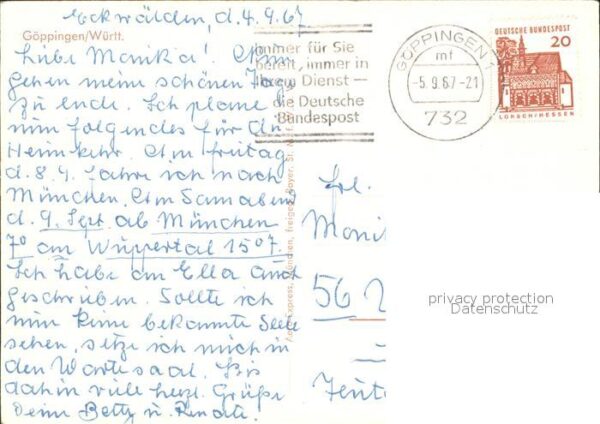 Eckwälden, d. 4.9.67
Göppingen/Württ.
Liebe Monika! Nun
gehen meine schönen Tage
zu ende. Ich plane
nun folgendes für die
Heimkehr. Am Freitag
d. 8.9. fahre ich nach
München. Am Samabend
d. 9. Sept. ab München
7⁰ an Wuppertal 15⁰⁷.
Ich habe an Ella auch
geschrieben. Sollte ich
nun keine bekannte Seele
sehen, setze ich mich in
den Wartesaal. Bis
dahin viele herzl. Grüße
Deine Betty u. Renate.
immer für Sie
bereit, immer in
Ihrem Dienst —
die Deutsche
Bundespost
GÖPPINGEN
mf
-5.9.67-21
732
DEUTSCHE BUNDESPOST
20
LORSCH/HESSEN
Frl.
Moni
56
privacy protection
Datenschutz